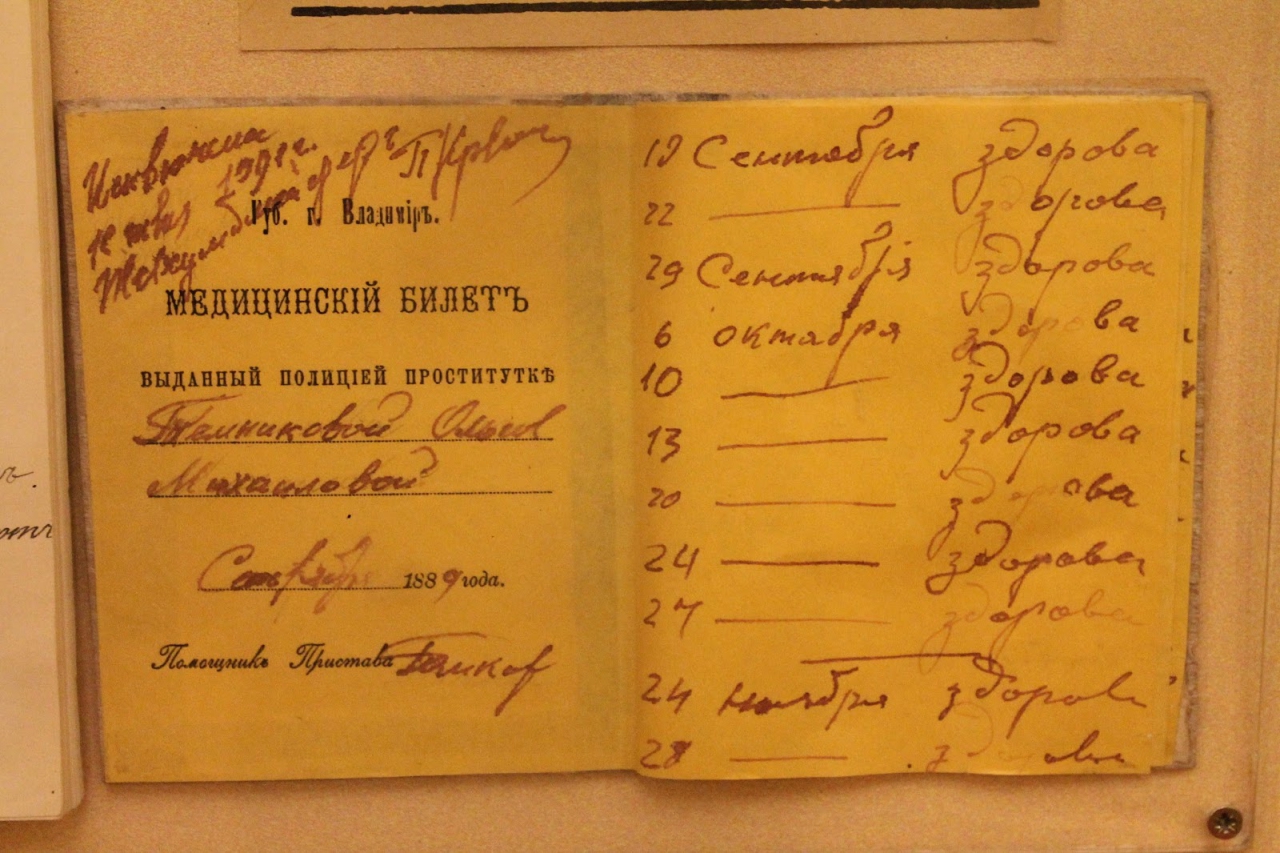 1891 г.
Губ. г. Владиміръ.
МЕДИЦИНСКІЙ БИЛЕТЪ
ВЫДАННЫЙ ПОЛИЦІЕЙ ПРОСТИТУТКѢ
Темниковой
Михаиловой
1889 года.
Помощникъ Пристава
19 Сентября здорова
22 — здорова
29 Сентября здорова
6 октября здорова
10 — здорова
13 — здорова
20 — здорова
24 — здорова
27 — здорова
24 ноября здорова
28 — здорова